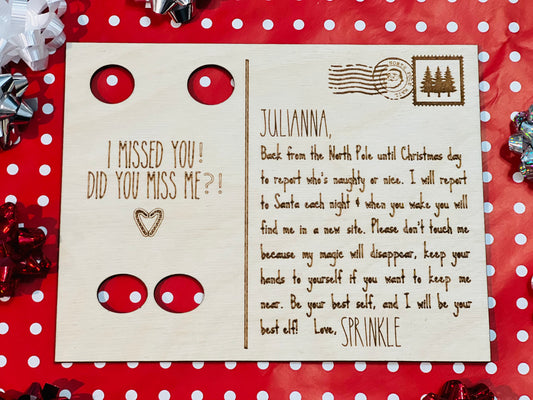 I MISSED YOU!
DID YOU MISS ME?!
JULIANNA,
Back from the North Pole until Christmas day
to report who's naughty or nice. I will report
to Santa each night & when you wake you will
find me in a new site. Please don't touch me
because my magic will disappear, keep your
hands to yourself if you want to keep me
near. Be your best self, and I will be your
best elf! Love, SPRINKLE